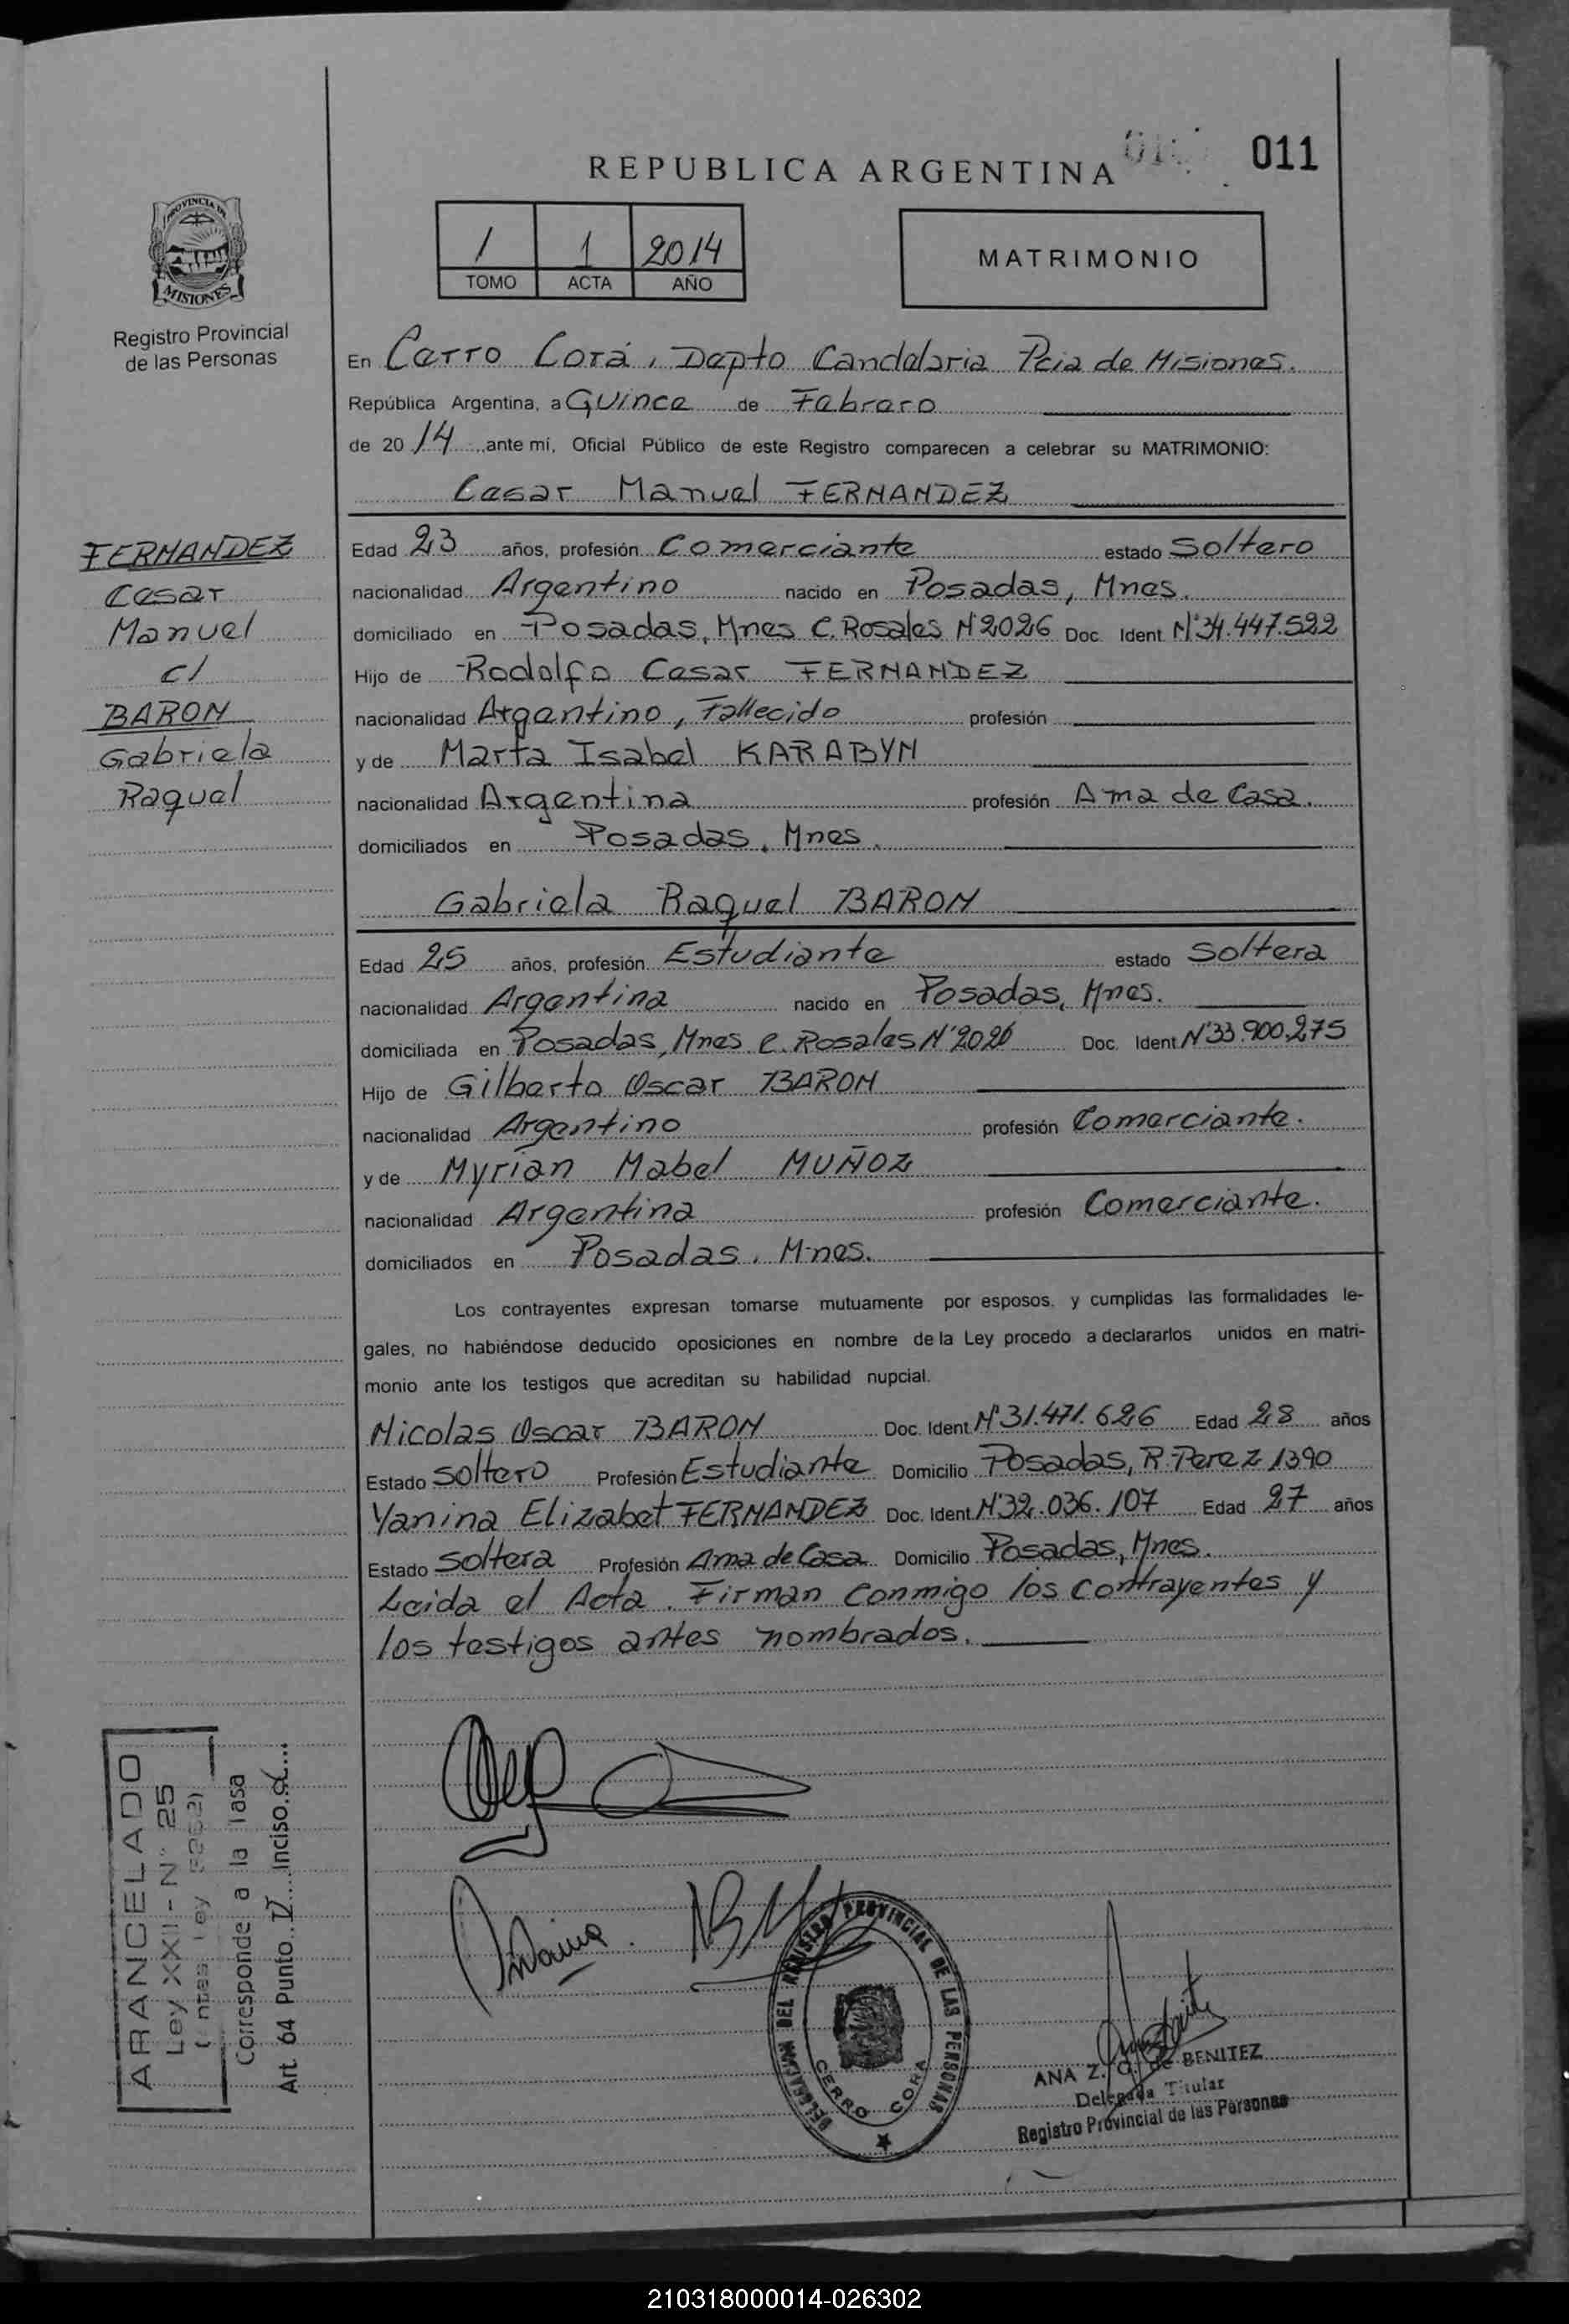 REPUBLICA ARGENTINA
011
PROVINCIA DE
MISIONES
Registro Provincial
de las Personas
1 1 2014
TOMO ACTA AÑO
MATRIMONIO
En Cerro Corá, Depto Candelaria Pcia de Misiones.
República Argentina, a Quince de Febrero
de 20 14 ante mí, Oficial Público de este Registro comparecen a celebrar su MATRIMONIO:
Cesar Manuel FERNANDEZ
FERNANDEZ
Cesar
Manuel
c/
BARON
Gabriela
Raquel
Edad 23 años, profesión Comerciante estado Soltero
nacionalidad Argentino nacido en Posadas, Mnes.
domiciliado en Posadas, Mnes C. Rosales Nº2026 Doc. Ident. Nº34.447.522
Hijo de Rodolfo Cesar FERNANDEZ
nacionalidad Argentino, Fallecido profesión
y de Marta Isabel KARABYN
nacionalidad Argentina profesión Ama de Casa.
domiciliados en Posadas, Mnes.
Gabriela Raquel BARON
Edad 25 años, profesión Estudiante estado Soltera
nacionalidad Argentina nacido en Posadas, Mnes.
domiciliada en Posadas, Mnes C. Rosales Nº2026 Doc. Ident. Nº33.900.275
Hijo de Gilberto Oscar BARON
nacionalidad Argentino profesión Comerciante.
y de Myrian Mabel MUÑOZ
nacionalidad Argentina profesión Comerciante.
domiciliados en Posadas, Mnes.
Los contrayentes expresan tomarse mutuamente por esposos, y cumplidas las formalidades le-
gales, no habiéndose deducido oposiciones en nombre de la Ley procedo a declararlos unidos en matri-
monio ante los testigos que acreditan su habilidad nupcial.
Nicolas Oscar BARON Doc. Ident. Nº31.471.626 Edad 28 años
Estado Soltero Profesión Estudiante Domicilio Posadas, R. Perez 1390
Yanina Elizabet FERNANDEZ Doc. Ident. Nº32.036.107 Edad 27 años
Estado Soltera Profesión Ama de Casa Domicilio Posadas, Mnes.
Leida el Acta. Firman conmigo los contrayentes y
los testigos antes nombrados.
ARANCELADO
Ley XXII - Nº 25
Corresponde a la Tasa
Art. 64 Punto IV Inciso a
DELEGACION DEL REGISTRO PROVINCIAL DE LAS PERSONAS
CERRO CORA
ANA Z. G. de BENITEZ
Delegada Titular
Registro Provincial de las Personas
210318000014-026302